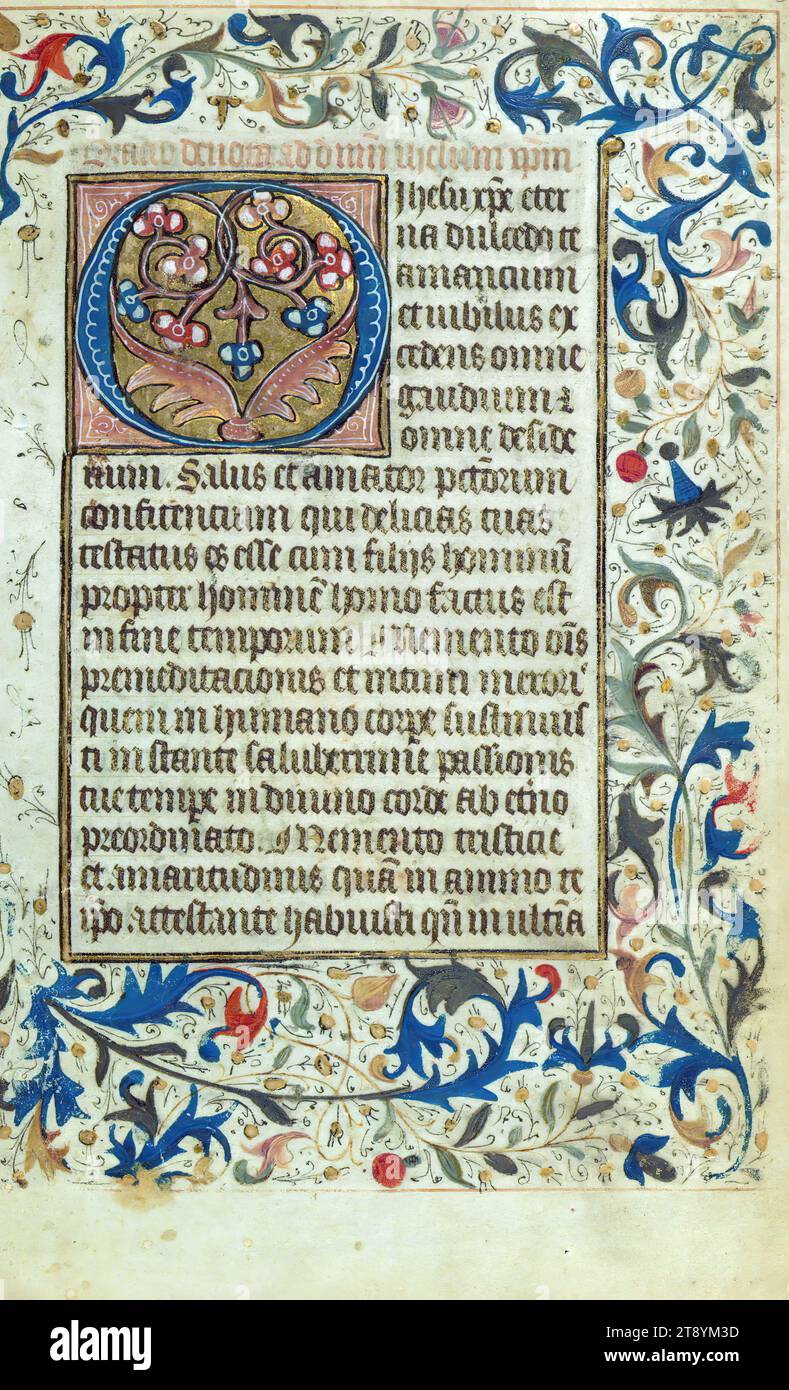 Oratio devota ad dnm ihesum xpm
O Jhesu xpe eter
na dulcedo te
amancium
et iubilus ex
cedens omne
gaudium ⁊
omne deside
rium. Salus et amator pctorum
confitencium qui delicias tuas
testatus es esse cum filijs hominū
propter hominē homo factus est
in fine temporum Memento ois
premeditacionis et intimi merori'
quem in humano corpe sustinuis
ti instante saluberrime passionis
tue tempe in diuino corde ab etno
preordinato. Memento tristicie
et amaritudinis quam in animo te
ipo attestante habuisti qn in ultīa
alamy
Image ID: 2T8YM3D
www.alamy.com